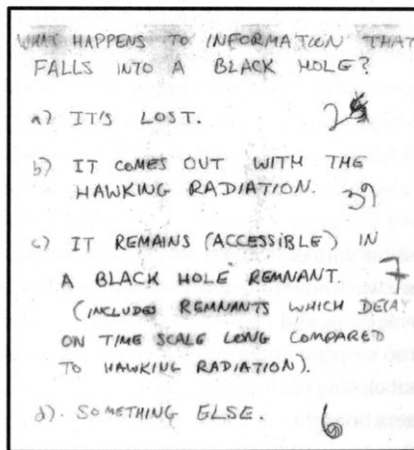 WHAT HAPPENS TO INFORMATION THAT
FALLS INTO A BLACK HOLE?
a) IT'S LOST. 25
b) IT COMES OUT WITH THE
HAWKING RADIATION. 39
c) IT REMAINS (ACCESSIBLE) IN
A BLACK HOLE REMNANT. 7
(INCLUDES REMNANTS WHICH DECAY
ON TIME SCALE LONG COMPARED
TO HAWKING RADIATION).
d). SOMETHING ELSE. 6